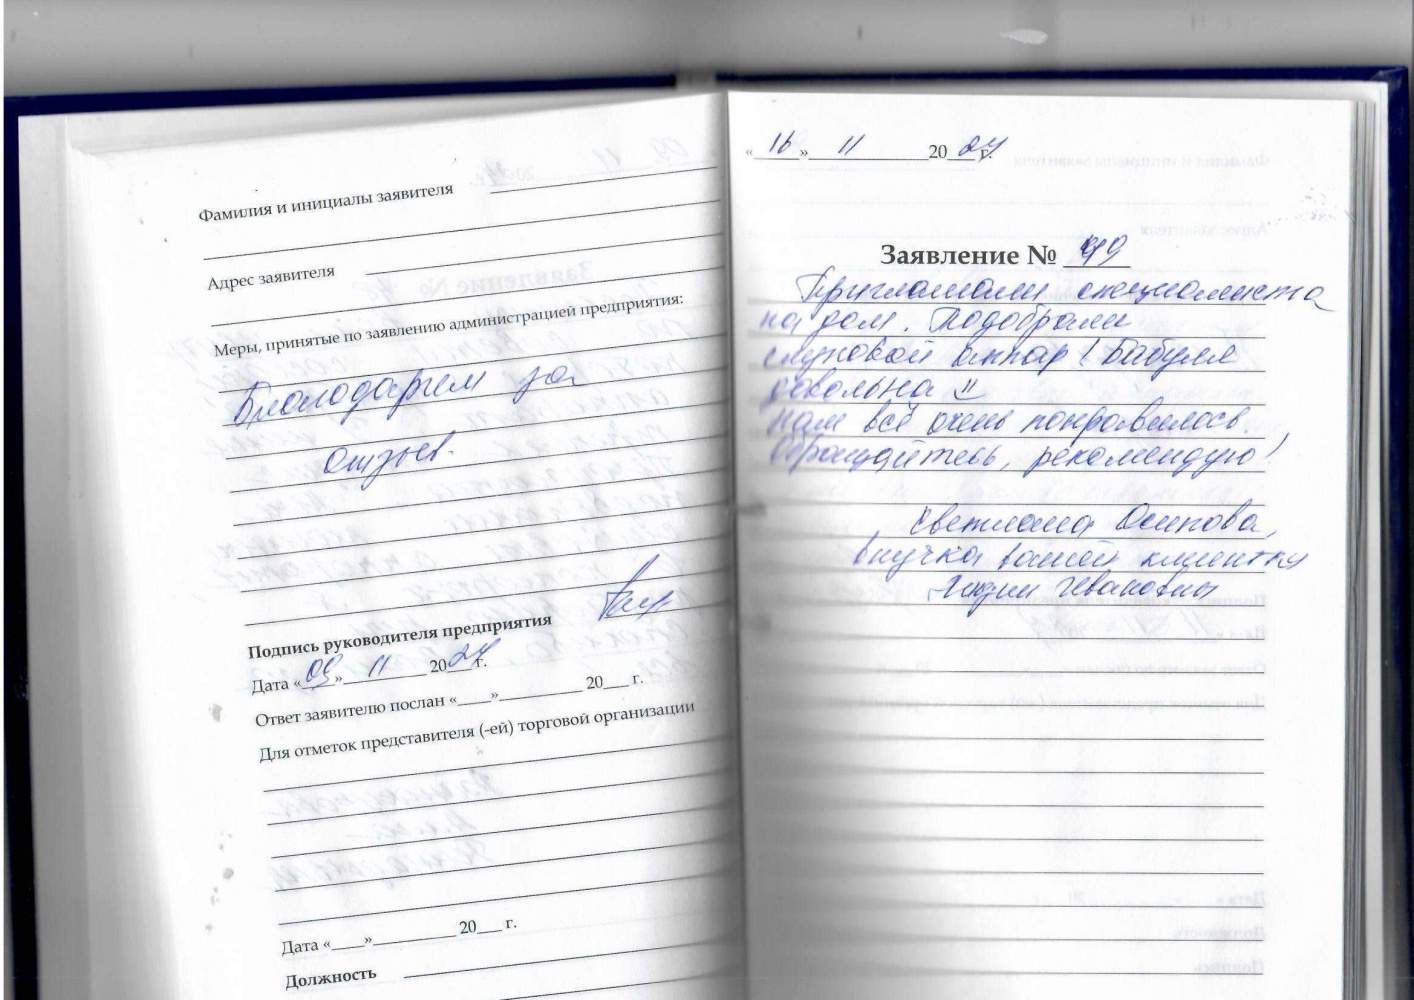 Фамилия и инициалы заявителя
Адрес заявителя
Меры, принятые по заявлению администрацией предприятия:
Благодарим за
отзыв.
Подпись руководителя предприятия
Дата «09» 11 2024 г.
Ответ заявителю послан «____»__________ 20___ г.
Для отметок представителя (-ей) торговой организации
Дата «____»__________ 20___ г.
Должность
«16» 11 2024 г.
Заявление № 49
Приглашали специалиста
на дом. Подобрали
слуховой аппар! Бабуля
довольна
нам всё очень понравилось.
Обращайтесь, рекомендую!
Светлана Осипова,
внучка вашей клиентки
Ивановны